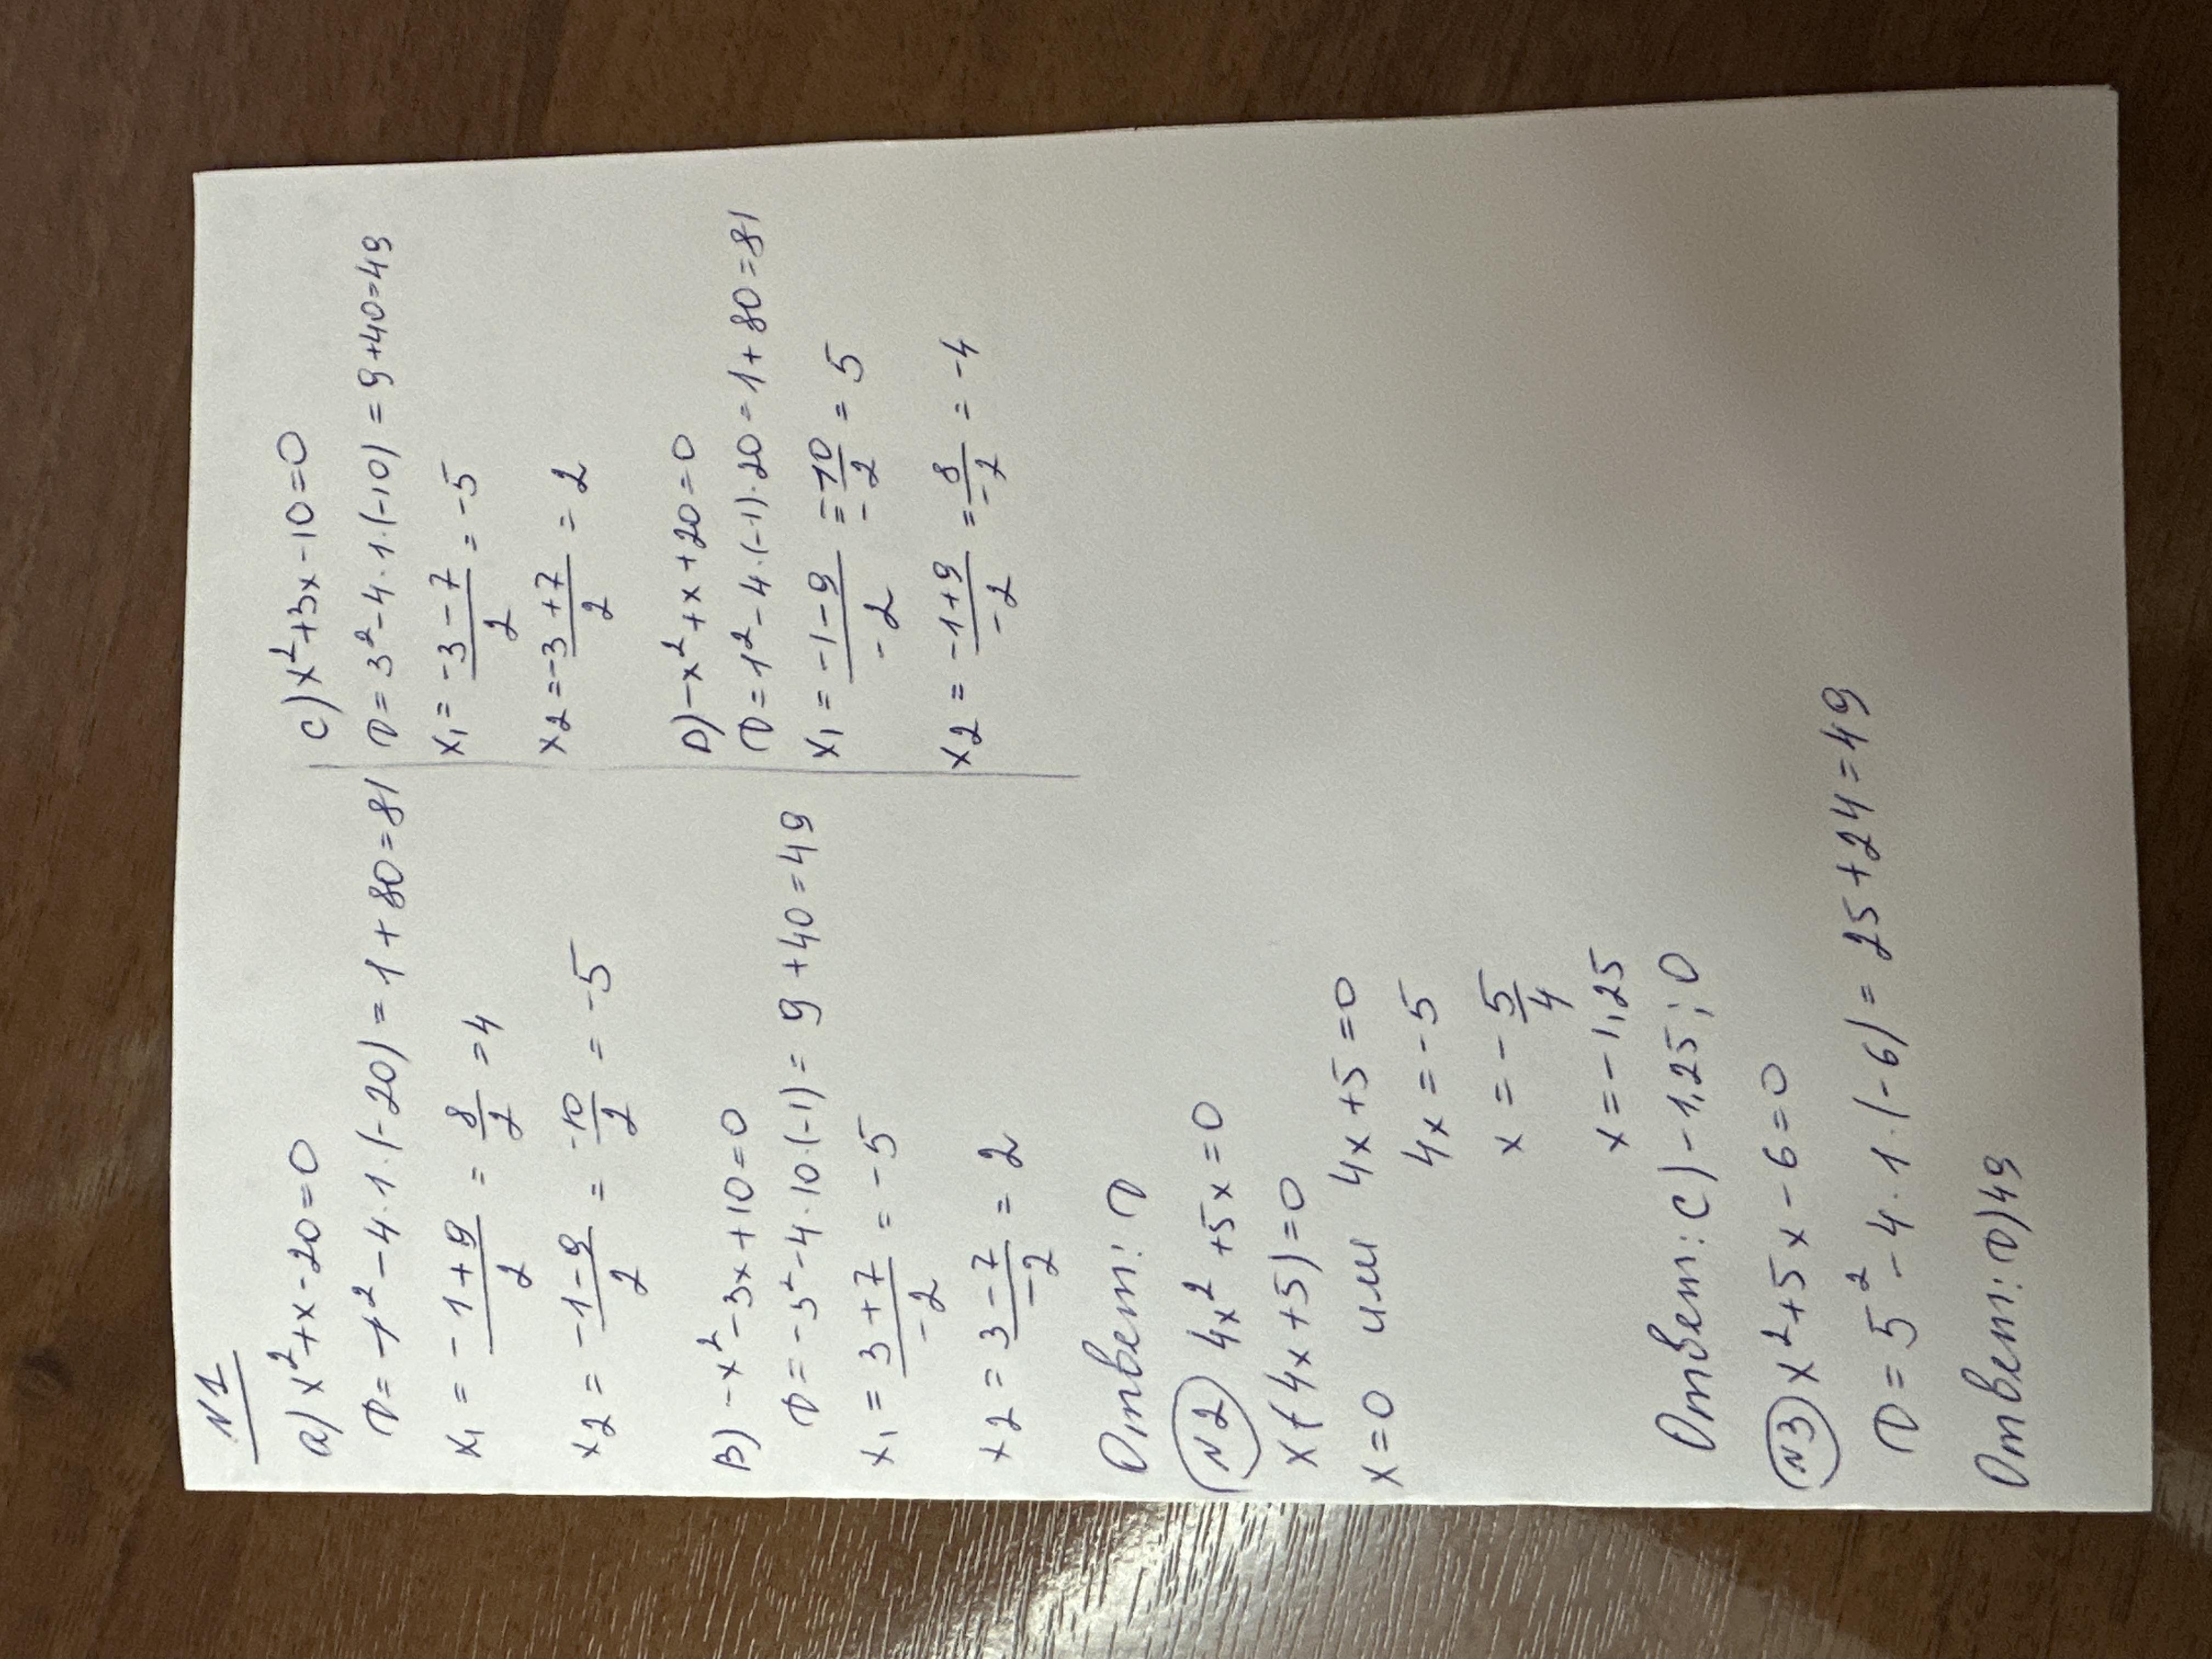 N1
a) x²+x-20=0
D=-1²-4·1·(-20)=1+80=81
x₁ = -1+9/2 = 8/2 = 4
x₂ = -1-9/2 = -10/2 = -5
B) -x²-3x+10=0
D=-3²-4·10·(-1)=9+40=49
x₁ = 3+7/-2 = -5
x₂ = 3-7/-2 = 2
C) x²+3x-10=0
D=3²-4·1·(-10)=9+40=49
x₁ = -3-7/2 = -5
x₂ = -3+7/2 = 2
D) -x²+x+20=0
D=1²-4·(-1)·20=1+80=81
x₁ = -1-9/-2 = -10/-2 = 5
x₂ = -1+9/-2 = 8/-2 = -4
Ответ: D
N2 4x²+5x=0
x(4x+5)=0
x=0 или 4x+5=0
4x=-5
x=-5/4
x=-1,25
Ответ: C) -1,25; 0
N3 x²+5x-6=0
D=5²-4·1·(-6)=25+24=49
Ответ: D) 49